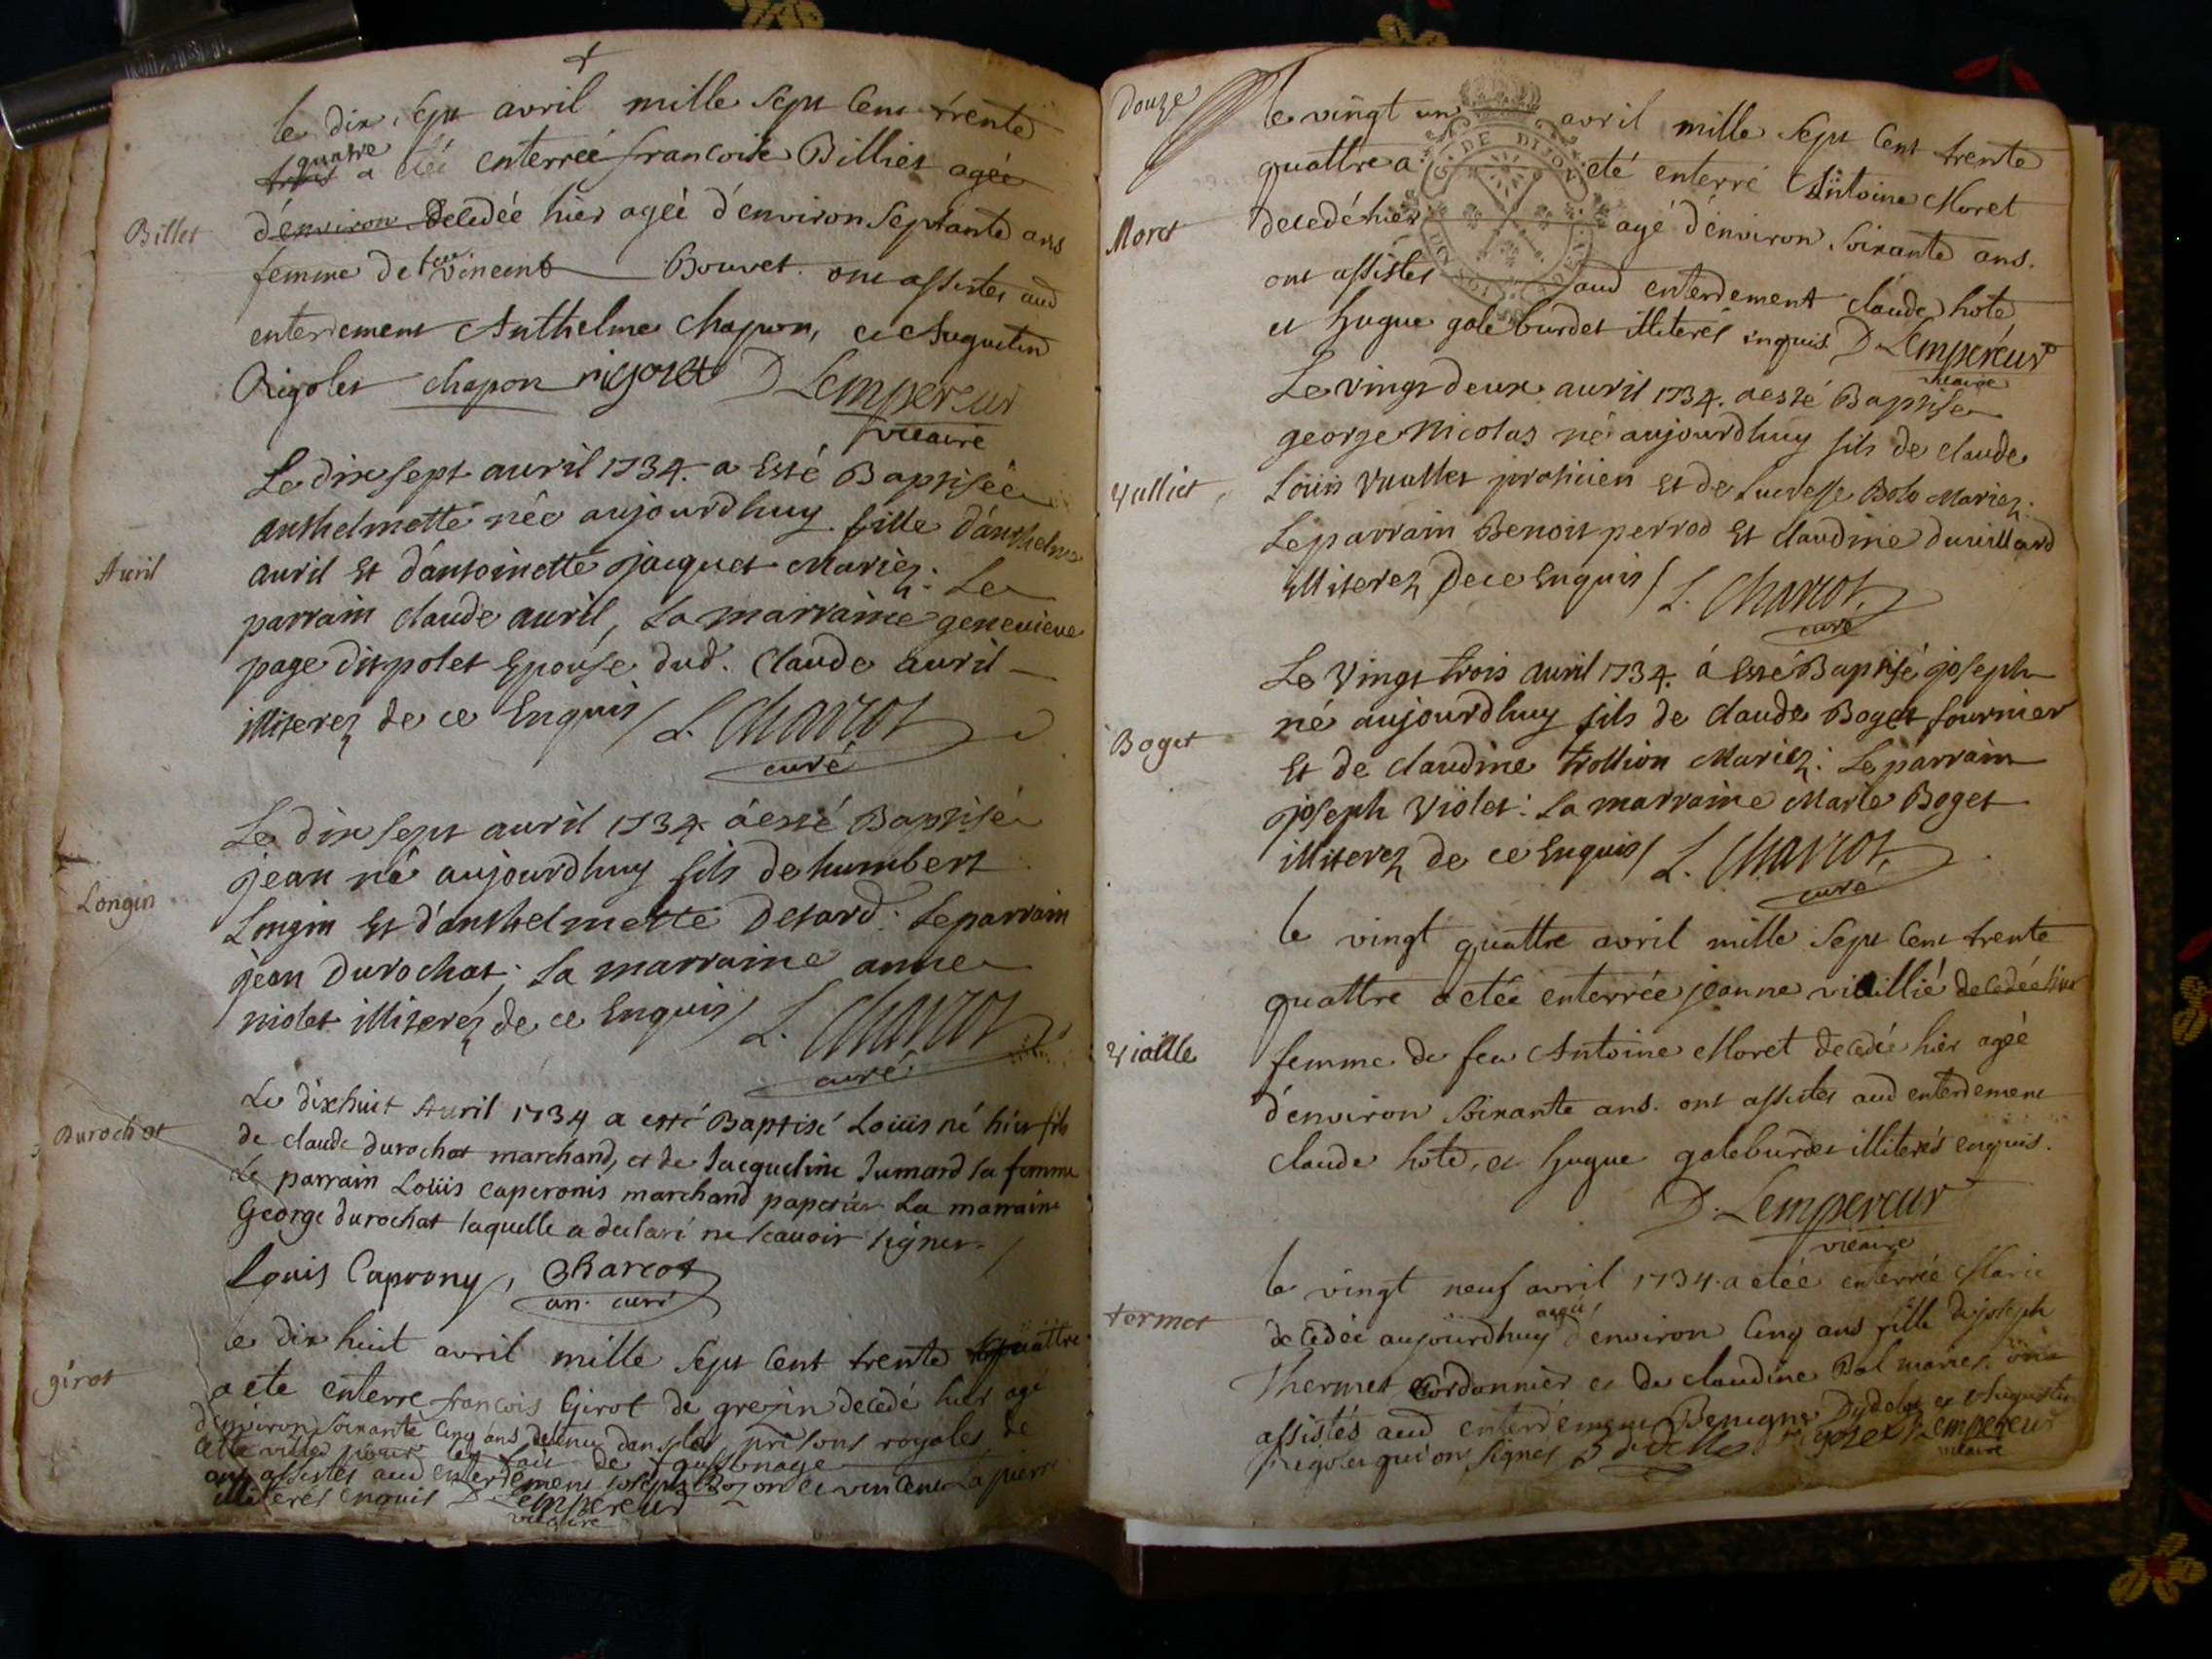 le dix sept avril mille sept cent trente
trois quatre a été enterrée francoise Billiet agée
d'environ decedée hier ageé d'environ septante ans
Billet
femme de feu vincent Bouvet. ont assistes aud
enterrement Anthelme Chapon, et Augustin
Rigolet chapon rigollet D Lempereur
vicaire
Le dix sept auril 1734. a Esté Baptisée
anthelmette née aujourdhuy fille d'anthelme
Auril
auril Et d'antoinette jacquet Mariez. Le
parrain claude auril, La marraine geneuieue
page dit polet Epouse dud. Claude auril
illiterez de ce Enquis / L. Charcot
curé
Le dix sept auril 1734. a esté Baptisé
jean né aujourdhuy fils de humbert
Longin
Longin Et d'anthelmette Detard. Le parrain
jean Durochat; La marraine anne
violet illiterez de ce Enquis / L. Charcot
curé
Le dixhuit Auril 1734 a esté Baptisé Loüis né hier fils
Durochat
de claude durochat marchand, et de Jacqueline Jumard sa femme
Le parrain Loüis caperonis marchand papetier La marraine
George durochat laquelle a declaré ne scauoir signer.
Louis Caprony, Charcot
an. curé
le dix huit avril mille sept cent trente quattre
girot
a ete enterre francois Girot de grezin decedé hier agé
d'environ soixante cinq ans detenu dans les prisons royales de
cette ville pour le fait de faussonage
ont assistes aud enterrement joseph Bozon et vincent Lapierre
illiterés enquis D Lempereur
vicaire
Douze
le vingt un avril mille sept cent trente
G. DE DIJON
quattre a eté enterré Antoine Moret
Moret
decedé hier agé d'environ soixante ans.
ont assistes aud enterrement claude hote
et hugue galeburdet illiterés enquis D. Lempereur
vicaire
Le vingt deux auril 1734. a esté Baptisé
george Nicolas né aujourdhuy fils de claude
Vulliet
Loüis Vualliet praticien et de Lucresse Bolo Mariez.
Le parrain Benoit perrod Et claudine duuillard
illiterez de ce Enquis / L. Charcot
curé
Le Vingt trois auril 1734. á Esté Baptisé joseph
né aujourdhuy fils de claude Boget fournier
Boget
Et de claudine trollion Mariez. Le parrain
joseph Violet: La marraine Marie Boget
illiterez de ce Enquis / L. Charcot
curé
le vingt quattre avril mille sept cent trente
quattre a etée enterrée jeanne viaillié decedée hier
Vialle
femme de feu Antoine Moret decedée hier agée
d'environ soixante ans. ont assistes aud enterrement
claude hote, et hugue galeburdet illiterés enquis.
D. Lempereur
vicaire
le vingt neuf avril 1734. a etée enterrée Marie
termet
decedée aujourdhuy agée d'environ cinq ans fille de joseph
Thermet Cordonnier et de claudine Bal mariés. ont
assistés aud enterrement Benigne Dydelle et Augustin
rigolet qui ont signes B didelle rigollet D. Lempereur
vicaire